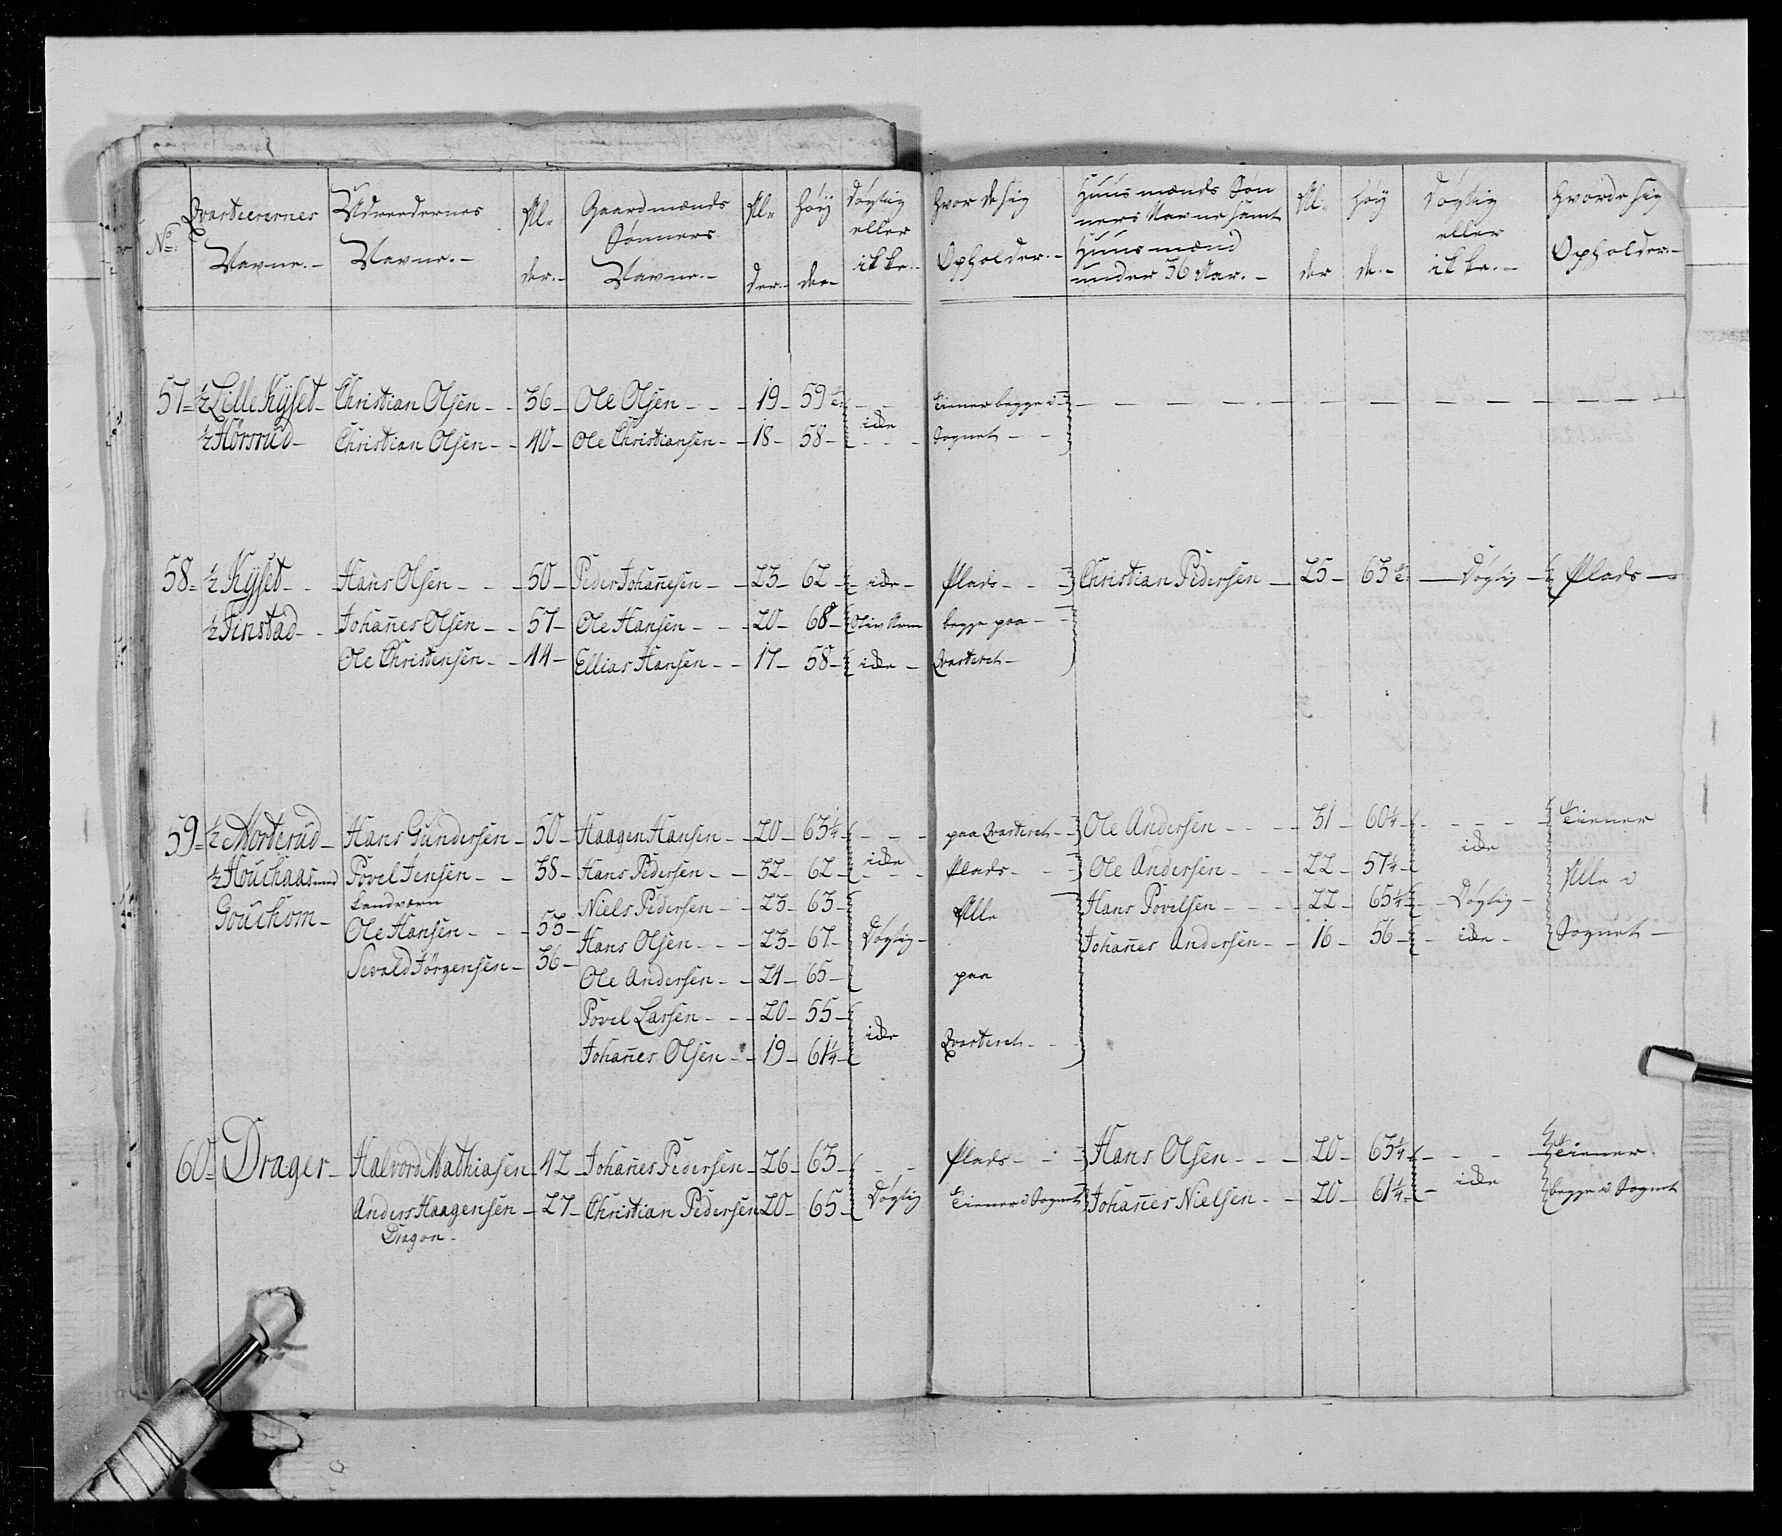 No:
Qvarterernes Navne.-
Udreedernes Navne.-
Al- der.-
Gaardmænds Sønners Navne.-
Al- der.-
Høy de-
Døgtig eller ikke.-
Hvor de sig Opholder.-
Huusmænds Søn ners Navne samt Huusmænd under 36 Aar.-
Al- der
Høy de.-
Døgtig eller ikke.-
Hvor de sig Opholder.-
57- ½ Lille Kÿset- Christian Olsen - - 36- Ole Olsen - - - 19- 59½ - - Tiener begge i - - - - - - - - -
½ Hörsrud- Christian Olsen - - 40- Ole Christiansen - - 18- 58- icke - - Sognet - -
58- ½ Kÿset - - Hans Olsen - - - 50- Peder Johanesen - - 23- 62- icke- Plads - - - Christian Pedersen - 25- 63½ - Døgtig - Plads -
½ Finstad - - Johanes Olsen - - 57- Ole Hansen - - - 20- 68- begge paa - -
Ole Christensen - - 44- Ellias Hansen - - 17- 58- icke - Qvarteret -
59- ½ Morterud- Hans Gundersen - 50- Haagen Hansen - - 20- 63¼ - - - paa Qvarteret - Ole Andersen - - - - 31- 60¼ - - - Tiener
½ Houchaas med Povel Jensen - - 38- Hans Pedersen - - 32- 62- icke - - Plads - - - Ole Andersen - - - 22- 57¼ icke Alle i
Gouchom- Landværn Niels Pedersen - - 23- 63- Alle Hans Povelsen - - - - 22- 65¼ - Døgtig -
Ole Hansen - - - 53- Hans Olsen - - - 23- 67- Døgtig - Johanes Andersen - - 16- 56- - icke - Sognet -
Sevald Jörgensen - 36- Ole Andersen - - 24- 65- paa
Povel Larsen - - - 20- 55-
Johanes Olsen - - 19- 61¼ icke Qvarteret - -
60- Drager- Halvord Mathiasen - 42- Johanes Pedersen - 26- 63- - - Plads - - - Hans Olsen - - - 20- 63¼ - - - Tiener
Anders Haagensen - 27- Christian Pedersen 20- 65- Døgtig Tiener i Sognet Johanes Nielsen - - 20- 61¼ - icke begge i Sognet
Dragon-